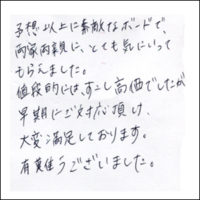 予想以上に素敵なボードで、
両家両親に、とても気にいって
もらえました。
値段的には、すこし高価でしたが
早期にご対応頂け、
大変満足しております。
有難うございました。